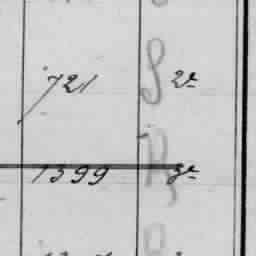 721 S 2e
1399 R 3e